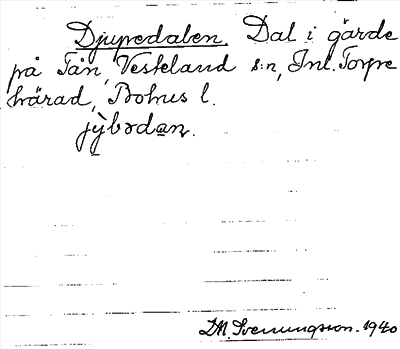 Djupedalen. Dal i gärde
på Tån, Vesteland s:n, Inl. Torpe
härad, Bohus l.
jy̆bədan.
D.M. Svenungsson. 1940